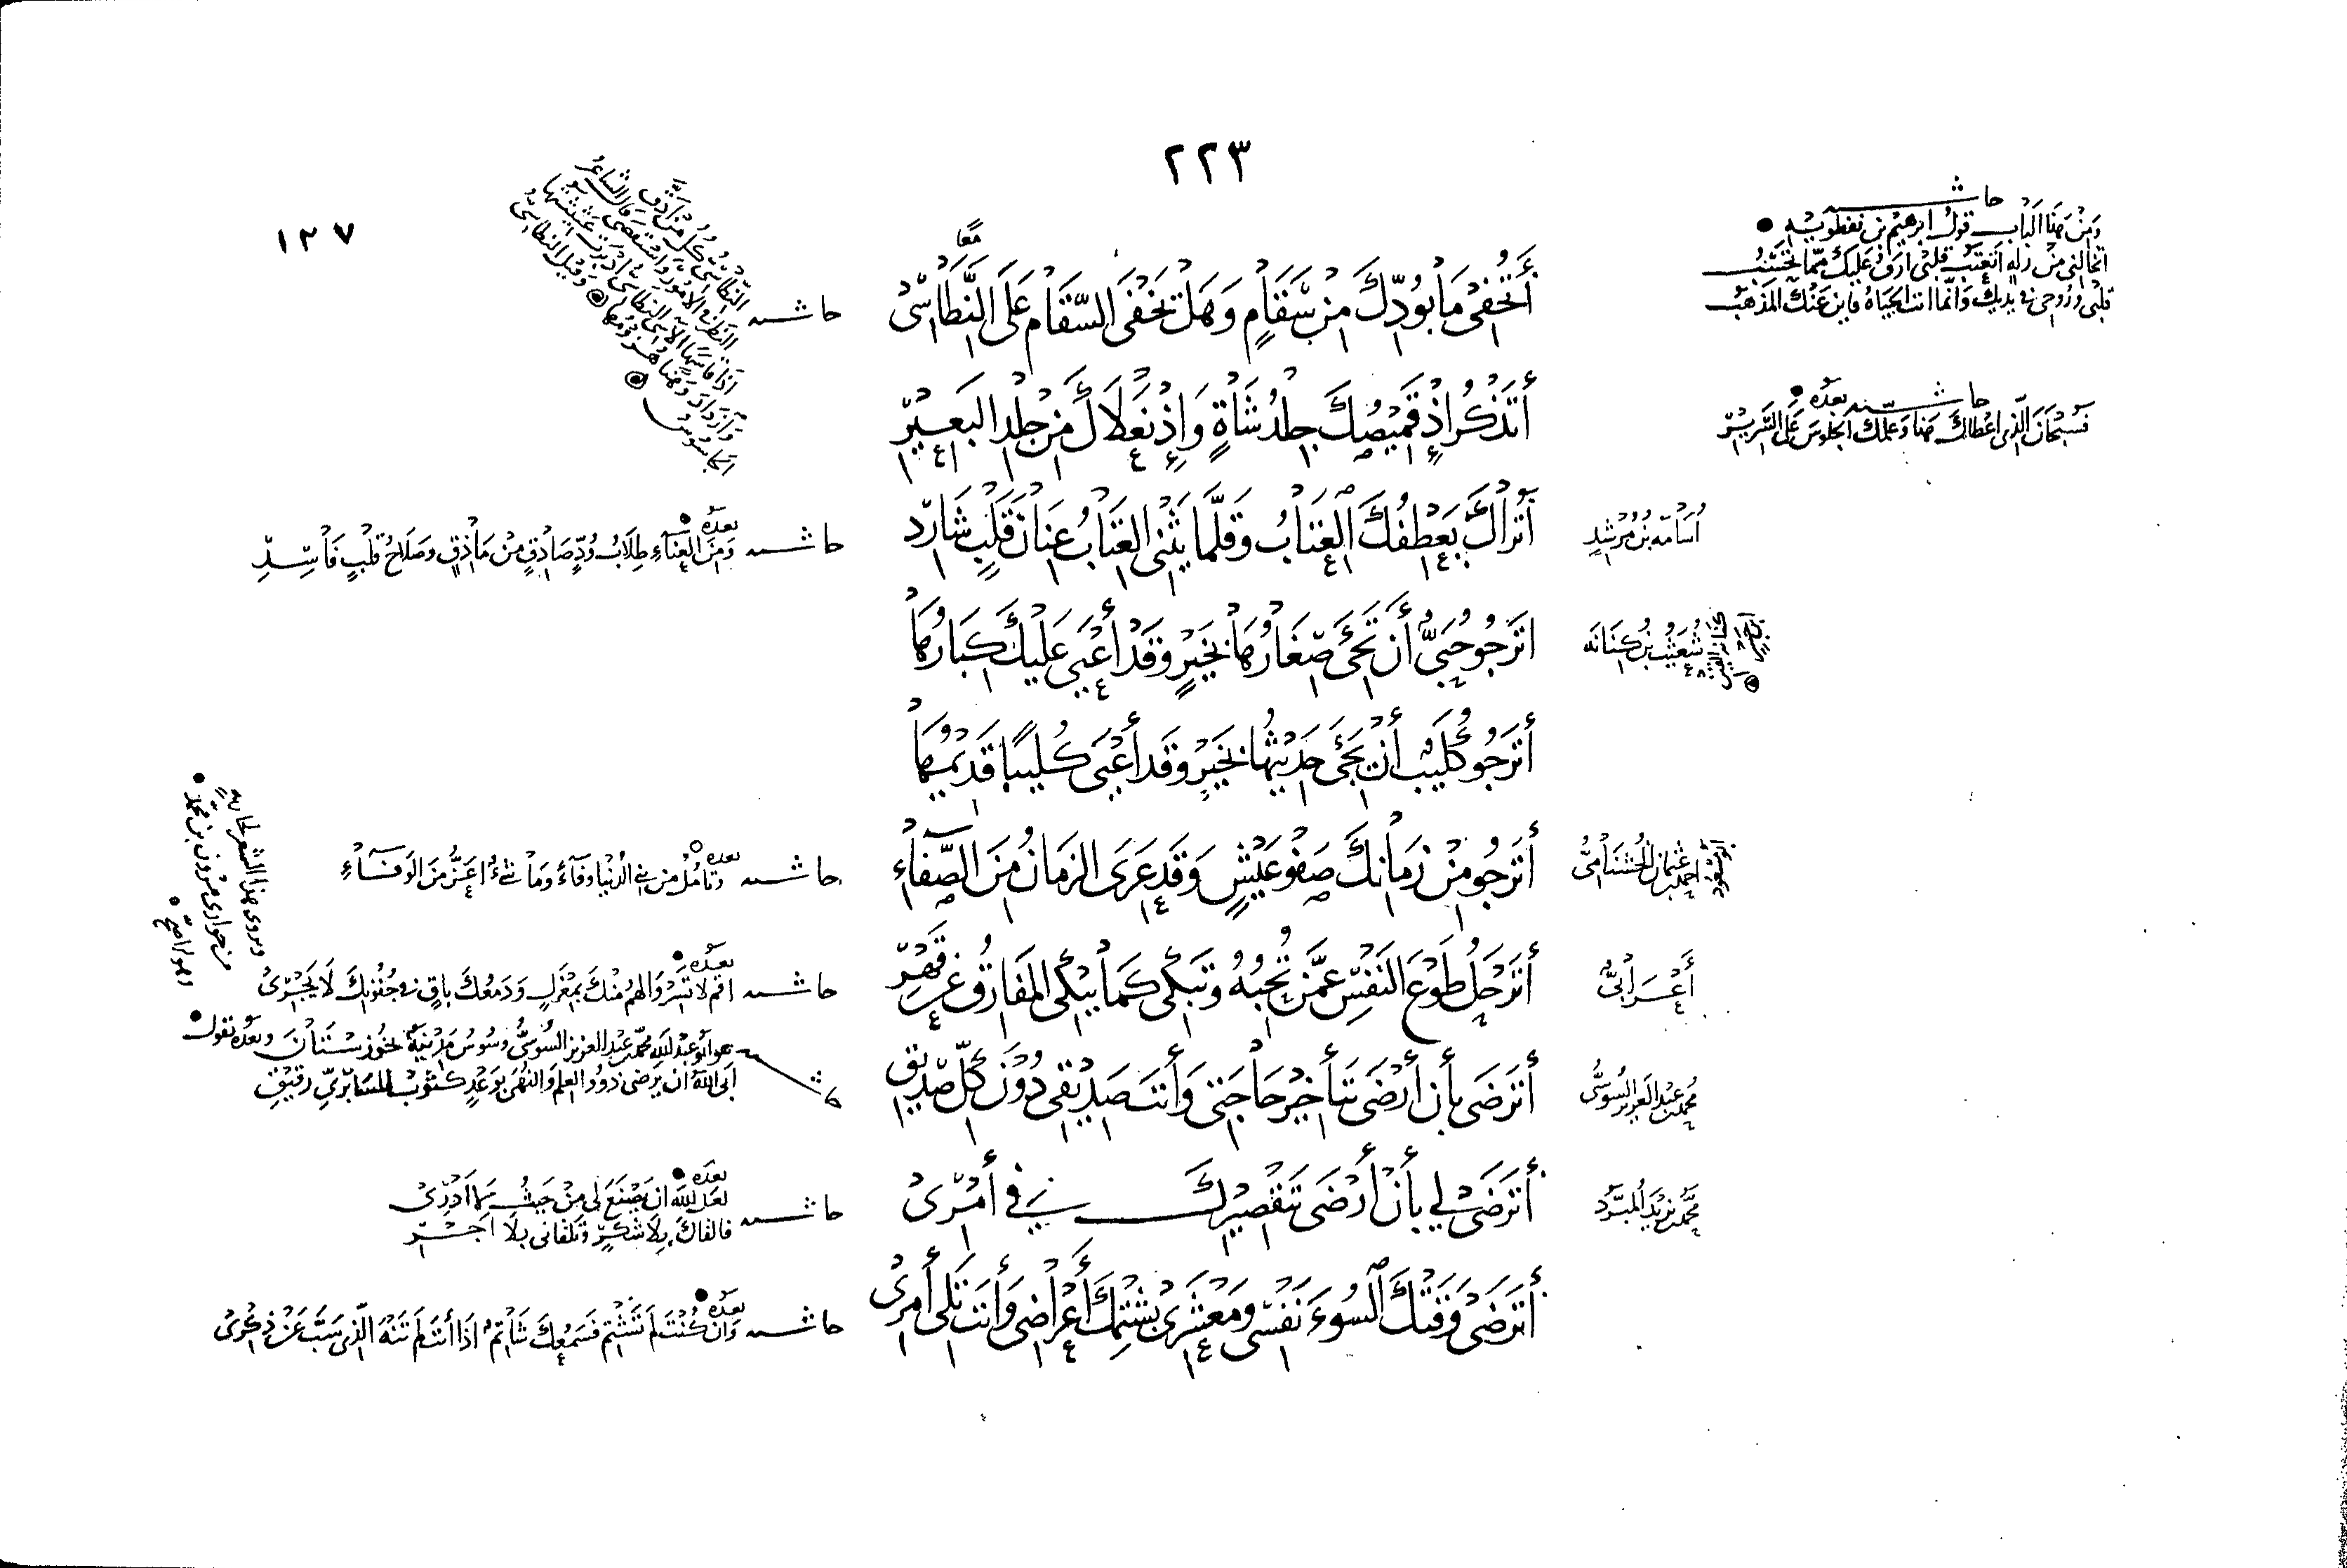 ٢٢٣
١٣٧
حاشية
ومن هذا الباب قول ابرهيم بن نفطويه
اتخالني من زلة اتعتب قلبي ارق عليك مما تحسب
قلبي وروحي في يديك وانما انت الحياة فاين عنك المذهب
معا
أَتُخْفِي مَا بِوُدِّكَ مِنْ سَقَامٍ وَهَلْ يَخْفَى السَّقَامُ عَلَى النَّطَاسِي
حاشية
النطاسي كل من ادق
النظر في الامور واستقصى قال الشاعر
اذا قاسها الآسي النطاسي ادبرت غثيثتها
وازداد وهيا هزومها وقيل النطاسي
الجاسوس
حاشية بعده
فسبحان الذي اعطاك هذا وعلمك الجلوس على السرير
أَتَذْكُرُ إِذْ قَمِيصُكَ جِلْدُ شَاةٍ وَإِذْ نَعْلَاكَ مِنْ جِلْدِ الْبَعِيرِ
اسامة بن مرشد
أَتُرَاكَ يَعْطِفُكَ الْعِتَابُ وَقَلَّمَا يَثْنِي الْعِتَابُ عِنَانَ قَلْبٍ شَارِدِ
حاشية بعده
ومن العناء طلاب ود صادق من ماذق وصلاح قلب فاسد
شعيب بن كنانه
أَتَرْجُو حُيَيٌّ أَنْ تَجِئَ صِغَارُهَا بِخَيْرٍ وَقَدْ أَعْيَى عَلَيْكَ كِبَارُهَا
أَتَرْجُو كُلَيْبٌ أَنْ يَجِئَ حَدِيثُهَا بِخَيْرٍ وَقَدْ أَعْيَى كُلَيْبًا قَدِيمُهَا
احمد بن عثمان الخشنامي
أَتَرْجُو مِنْ زَمَانِكَ صَفْوَ عَيْشٍ وَقَدْ عَرِيَ الزَمَانُ مِنَ الصَّفَاءِ
حاشية بعده
وتامل من بني الدنيا وفاء وما شيء اعز من الوفاء
ويروى هذا الشعر
هرون بن محمد
أعرابي
أَتَرْحَلُ طَوْعَ النَفْسِ عَمَّنْ تُحِبُّهُ وَتَبْكِي كَمَا يَبْكِي الْمَفَارِقُ عَنْ قَهْرِ
حاشية بعده
اقم لا تسر والهم منك بمعزل ودمعك باق في جفونك لا يجري
محمد بن عبد العزيز السوسي
أَتَرْضَى بِأَنْ أَرْضَى بِتَأْخِيرِ حَاجَتِي وَأَنْتَ صَدِيقِي دُونَ كُلِّ صَدِيقِ
هو ابو عبد الله محمد بن عبد العزيز السوسي وسوس مدينة بخوزستان وبعده يقول
ابى الله ان يرضى ذوو العلم والنهى بوعد كثوب السابري رقيق
محمد بن يزيد المبرد
أَتَرْضَى لِي بِأَنْ أَرْضَى بِتَقْصِيرِكَ فِي أَمْرِي
حاشية بعده
لعل الله ان يصنع لي من حيث ما ادري
فالقاك بلا شكر وتلقاني بلا اجر
أَتَرْضَى وَقَتْكَ السُوءَ نَفْسِي وَمَعْشَرِي بِشَتْمِكَ أَعْرَاضِي وَأَنْتَ تَلِي أَمْرِي
حاشية بعده
وان كنت لم تشتم فسمعك شاتم اذا أنت لم تنه الذي سب عن ذكري